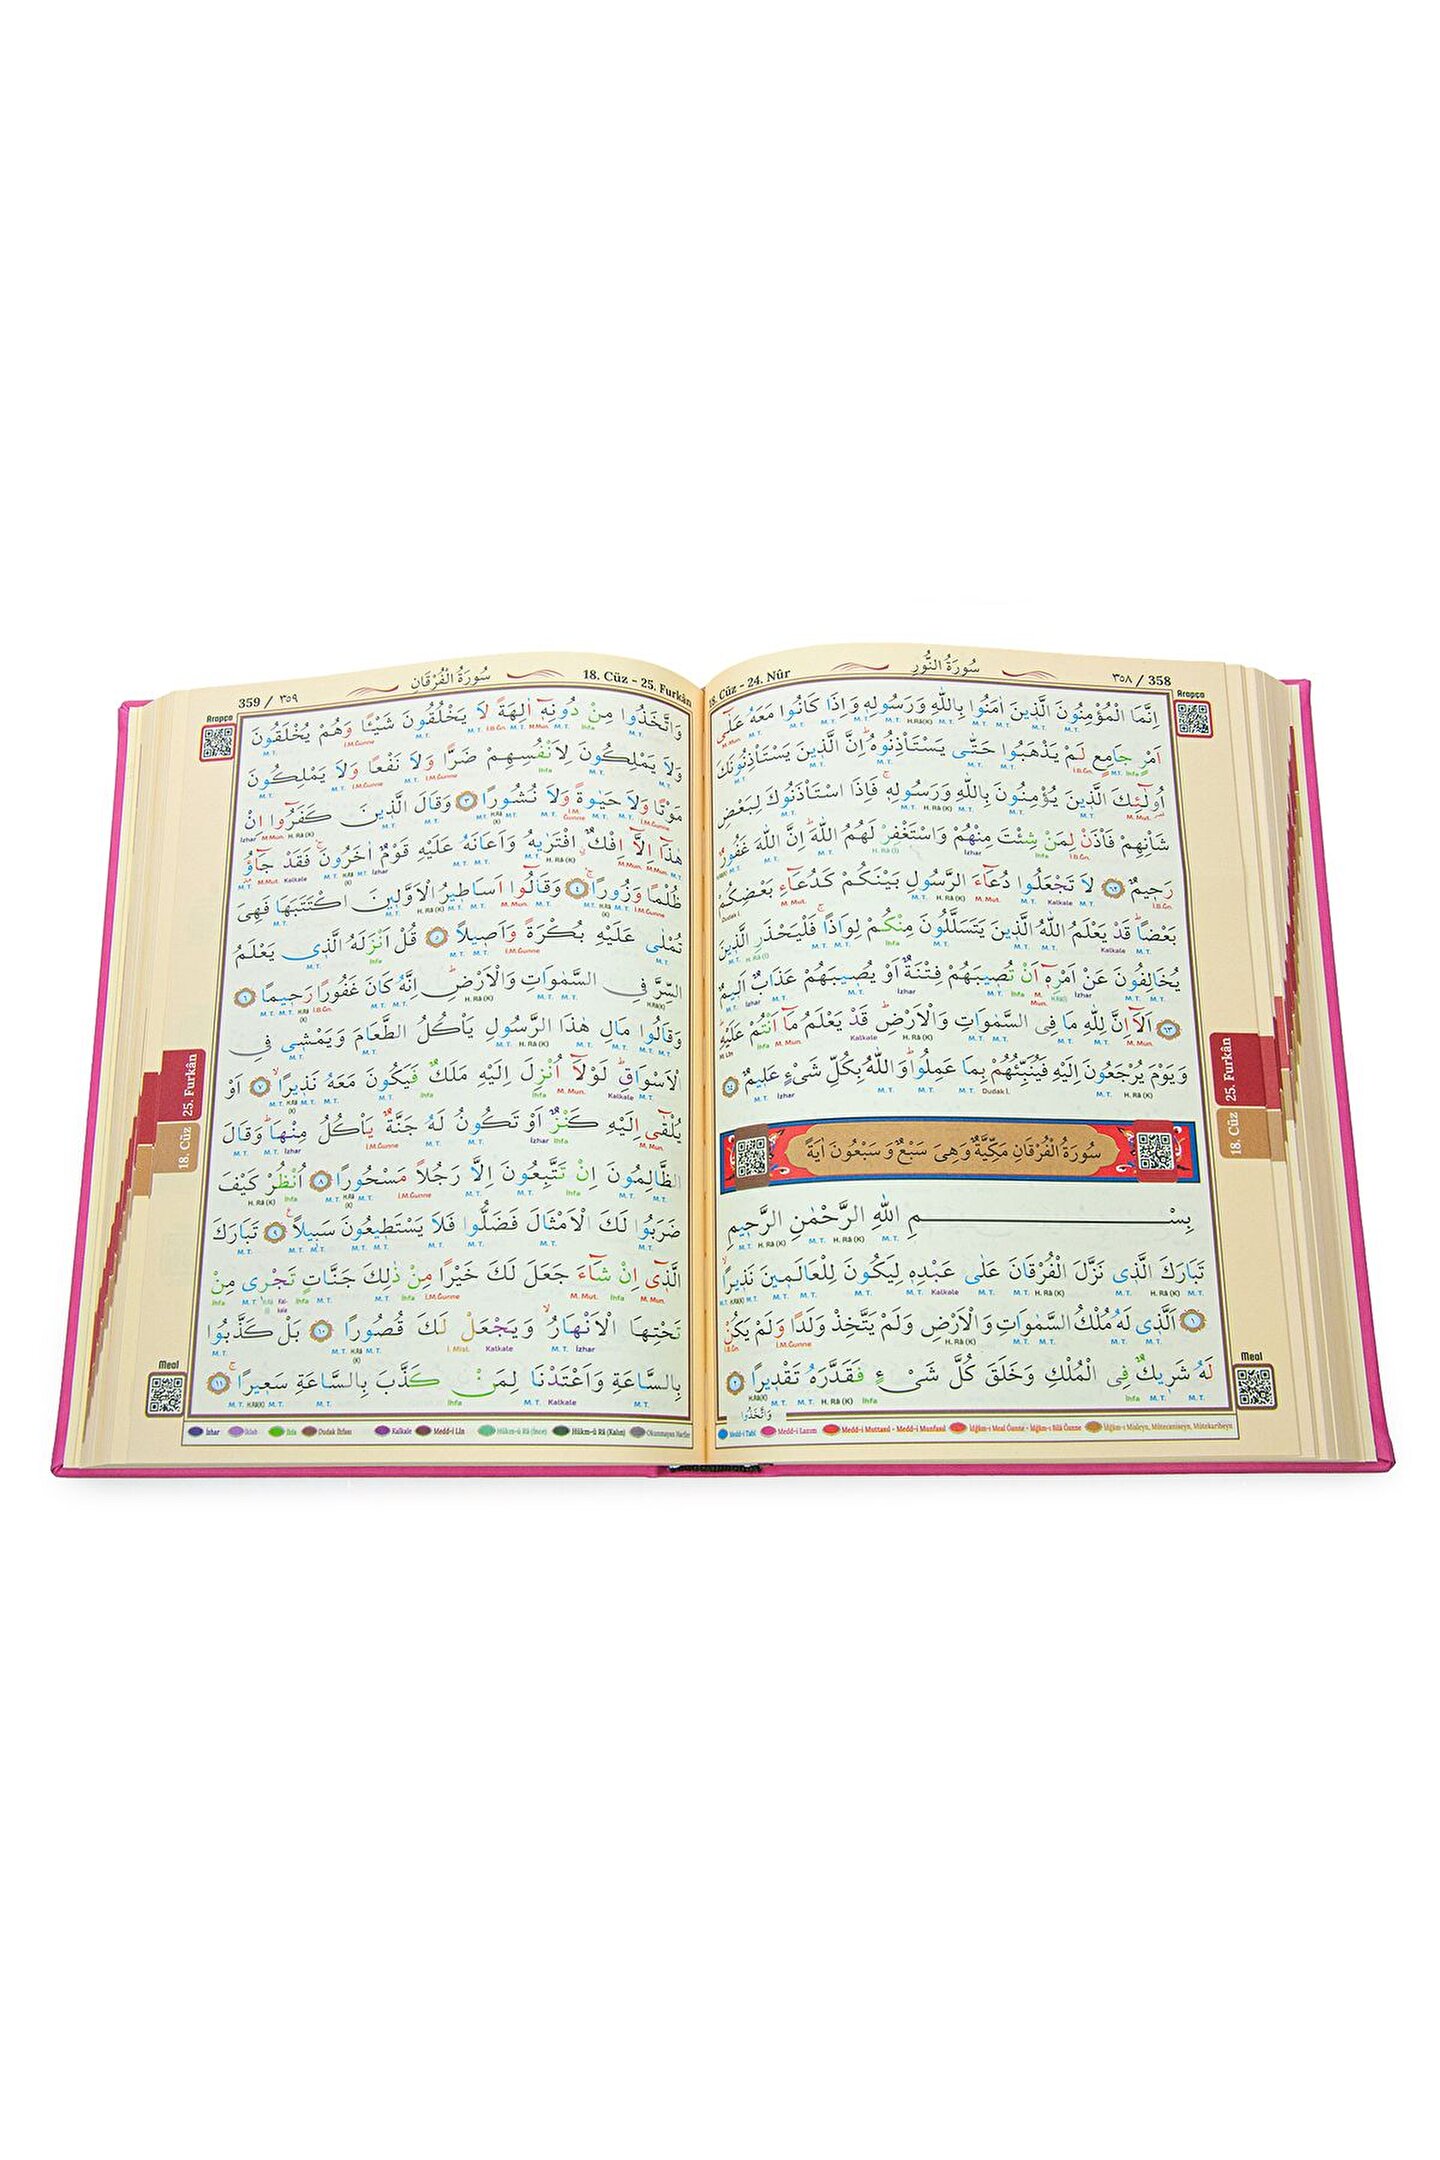 358 / ٣٥٨
سُورَةُ النُّورِ
18. Cüz - 24. Nûr
Arapça
اِنَّمَا الْمُؤْمِنُونَ الَّذِينَ اٰمَنُوا بِاللّٰهِ وَرَسُولِهِ وَاِذَا كَانُوا مَعَهُ عَلٰٓى
اَمْرٍ جَامِعٍ لَمْ يَذْهَبُوا حَتّٰى يَسْتَأْذِنُوهُ اِنَّ الَّذِينَ يَسْتَأْذِنُونَكَ
اُولٰٓئِكَ الَّذِينَ يُؤْمِنُونَ بِاللّٰهِ وَرَسُولِهِۚ فَاِذَا اسْتَأْذَنُوكَ لِبَعْضِ
شَأْنِهِمْ فَأْذَنْ لِمَنْ شِئْتَ مِنْهُمْ وَاسْتَغْفِرْ لَهُمُ اللّٰهَۜ اِنَّ اللّٰهَ غَفُورٌ
رَحِيمٌ ﴿٦٢﴾ لَا تَجْعَلُوا دُعَٓاءَ الرَّسُولِ بَيْنَكُمْ كَدُعَٓاءِ بَعْضِكُمْ
بَعْضًاۜ قَدْ يَعْلَمُ اللّٰهُ الَّذِينَ يَتَسَلَّلُونَ مِنْكُمْ لِوَاذًاۚ فَلْيَحْذَرِ الَّذِينَ
يُخَالِفُونَ عَنْ اَمْرِهِٓ اَنْ تُصِيبَهُمْ فِتْنَةٌ اَوْ يُصِيبَهُمْ عَذَابٌ اَلِيمٌ
﴿٦٣﴾ اَلَٓا اِنَّ لِلّٰهِ مَا فِى السَّمٰوَاتِ وَالْاَرْضِۜ قَدْ يَعْلَمُ مَٓا اَنْتُمْ عَلَيْهِۜ
وَيَوْمَ يُرْجَعُونَ اِلَيْهِ فَيُنَبِّئُهُمْ بِمَا عَمِلُواۜ وَاللّٰهُ بِكُلِّ شَىْءٍ عَلِيمٌ ﴿٦٤﴾
سُورَةُ الْفُرْقَانِ مَكِّيَّةٌ وَهِىَ سَبْعٌ وَسَبْعُونَ اٰيَةً
بِسْمِ اللّٰهِ الرَّحْمٰنِ الرَّحِيمِ
تَبَارَكَ الَّذِى نَزَّلَ الْفُرْقَانَ عَلٰى عَبْدِهِ لِيَكُونَ لِلْعَالَمِينَ نَذِيرًاۙ
﴿١﴾ اَلَّذِى لَهُ مُلْكُ السَّمٰوَاتِ وَالْاَرْضِ وَلَمْ يَتَّخِذْ وَلَدًا وَلَمْ يَكُنْ
لَهُ شَرِيكٌ فِى الْمُلْكِ وَخَلَقَ كُلَّ شَىْءٍ فَقَدَّرَهُ تَقْدِيرًا ﴿٢﴾
وَاتَّخَذُوا
25. Furkân
18. Cüz
Meal
Medd-i Tabî Medd-i Lazım Medd-i Muttasıl - Medd-i Munfasıl İdğam-ı Meal Ğunne - İdğam-ı Bilâ Ğunne İdğam-ı Misleyn, Mütecaniseyn, Mütekaribeyn
18. Cüz - 25. Furkân
سُورَةُ الْفُرْقَانِ
359 / ٣٥٩
Arapça
وَاتَّخَذُوا مِنْ دُونِهِٓ اٰلِهَةً لَا يَخْلُقُونَ شَيْئًا وَهُمْ يُخْلَقُونَ
وَلَا يَمْلِكُونَ لِاَنْفُسِهِمْ ضَرًّا وَلَا نَفْعًا وَلَا يَمْلِكُونَ
مَوْتًا وَلَا حَيٰوةً وَلَا نُشُورًا ﴿٣﴾ وَقَالَ الَّذِينَ كَفَرُٓوا اِنْ
هٰذَٓا اِلَّٓا اِفْكٌۨ افْتَرٰيهُ وَاَعَانَهُ عَلَيْهِ قَوْمٌ اٰخَرُونَۚ فَقَدْ جَٓاؤُ
ظُلْمًا وَزُورًاۚ ﴿٤﴾ وَقَالُٓوا اَسَاطِيرُ الْاَوَّلِينَ اكْتَتَبَهَا فَهِىَ
تُمْلٰى عَلَيْهِ بُكْرَةً وَاَصِيلًا ﴿٥﴾ قُلْ اَنْزَلَهُ الَّذِى يَعْلَمُ
السِّرَّ فِى السَّمٰوَاتِ وَالْاَرْضِۜ اِنَّهُ كَانَ غَفُورًا رَحِيمًا ﴿٦﴾
وَقَالُوا مَالِ هٰذَا الرَّسُولِ يَأْكُلُ الطَّعَامَ وَيَمْشِى فِى
الْاَسْوَاقِۜ لَوْلَٓا اُنْزِلَ اِلَيْهِ مَلَكٌ فَيَكُونَ مَعَهُ نَذِيرًاۙ ﴿٧﴾ اَوْ
يُلْقٰٓى اِلَيْهِ كَنْزٌ اَوْ تَكُونُ لَهُ جَنَّةٌ يَأْكُلُ مِنْهَاۜ وَقَالَ
الظَّالِمُونَ اِنْ تَتَّبِعُونَ اِلَّا رَجُلًا مَسْحُورًا ﴿٨﴾ اُنْظُرْ كَيْفَ
ضَرَبُوا لَكَ الْاَمْثَالَ فَضَلُّوا فَلَا يَسْتَطِيعُونَ سَبِيلًا۟ ﴿٩﴾ تَبَارَكَ
الَّذِٓى اِنْ شَٓاءَ جَعَلَ لَكَ خَيْرًا مِنْ ذٰلِكَ جَنَّاتٍ تَجْرِى مِنْ
تَحْتِهَا الْاَنْهَارُۙ وَيَجْعَلْ لَكَ قُصُورًا ﴿١٠﴾ بَلْ كَذَّبُوا
بِالسَّاعَةِ وَاَعْتَدْنَا لِمَنْ كَذَّبَ بِالسَّاعَةِ سَعِيرًاۚ ﴿١١﴾
25. Furkân
18. Cüz
Meal
İzhar İklab İhfa Dudak İhfası Kalkale Medd-i Lîn Hükm-ü Râ (İnce) Hükm-ü Râ (Kalın) Okunmayan Harfler